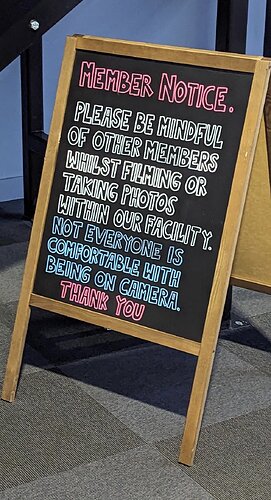 MEMBER NOTICE.
PLEASE BE MINDFUL
OF OTHER MEMBERS
WHILST FILMING OR
TAKING PHOTOS
WITHIN OUR FACILITY.
NOT EVERYONE IS
COMFORTABLE WITH
BEING ON CAMERA.
THANK YOU